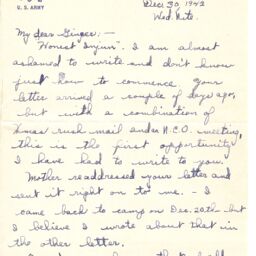 U. S. ARMY
Dec. 30, 1942
Wed. Nite.
My dear Ginger: —
"Honest Injun" I am almost
ashamed to write and don't know
just how to commence. Your
letter arrived a couple of days ago,
but with a combination of
Xmas rush mail and an N.C.O. meeting,
this is the first opportunity
I have had to write to you.
Mother readdressed your letter and
sent it right on to me. — I
came back to camp on Dec. 20th — but
I believe I wrote about that in
the other letter.